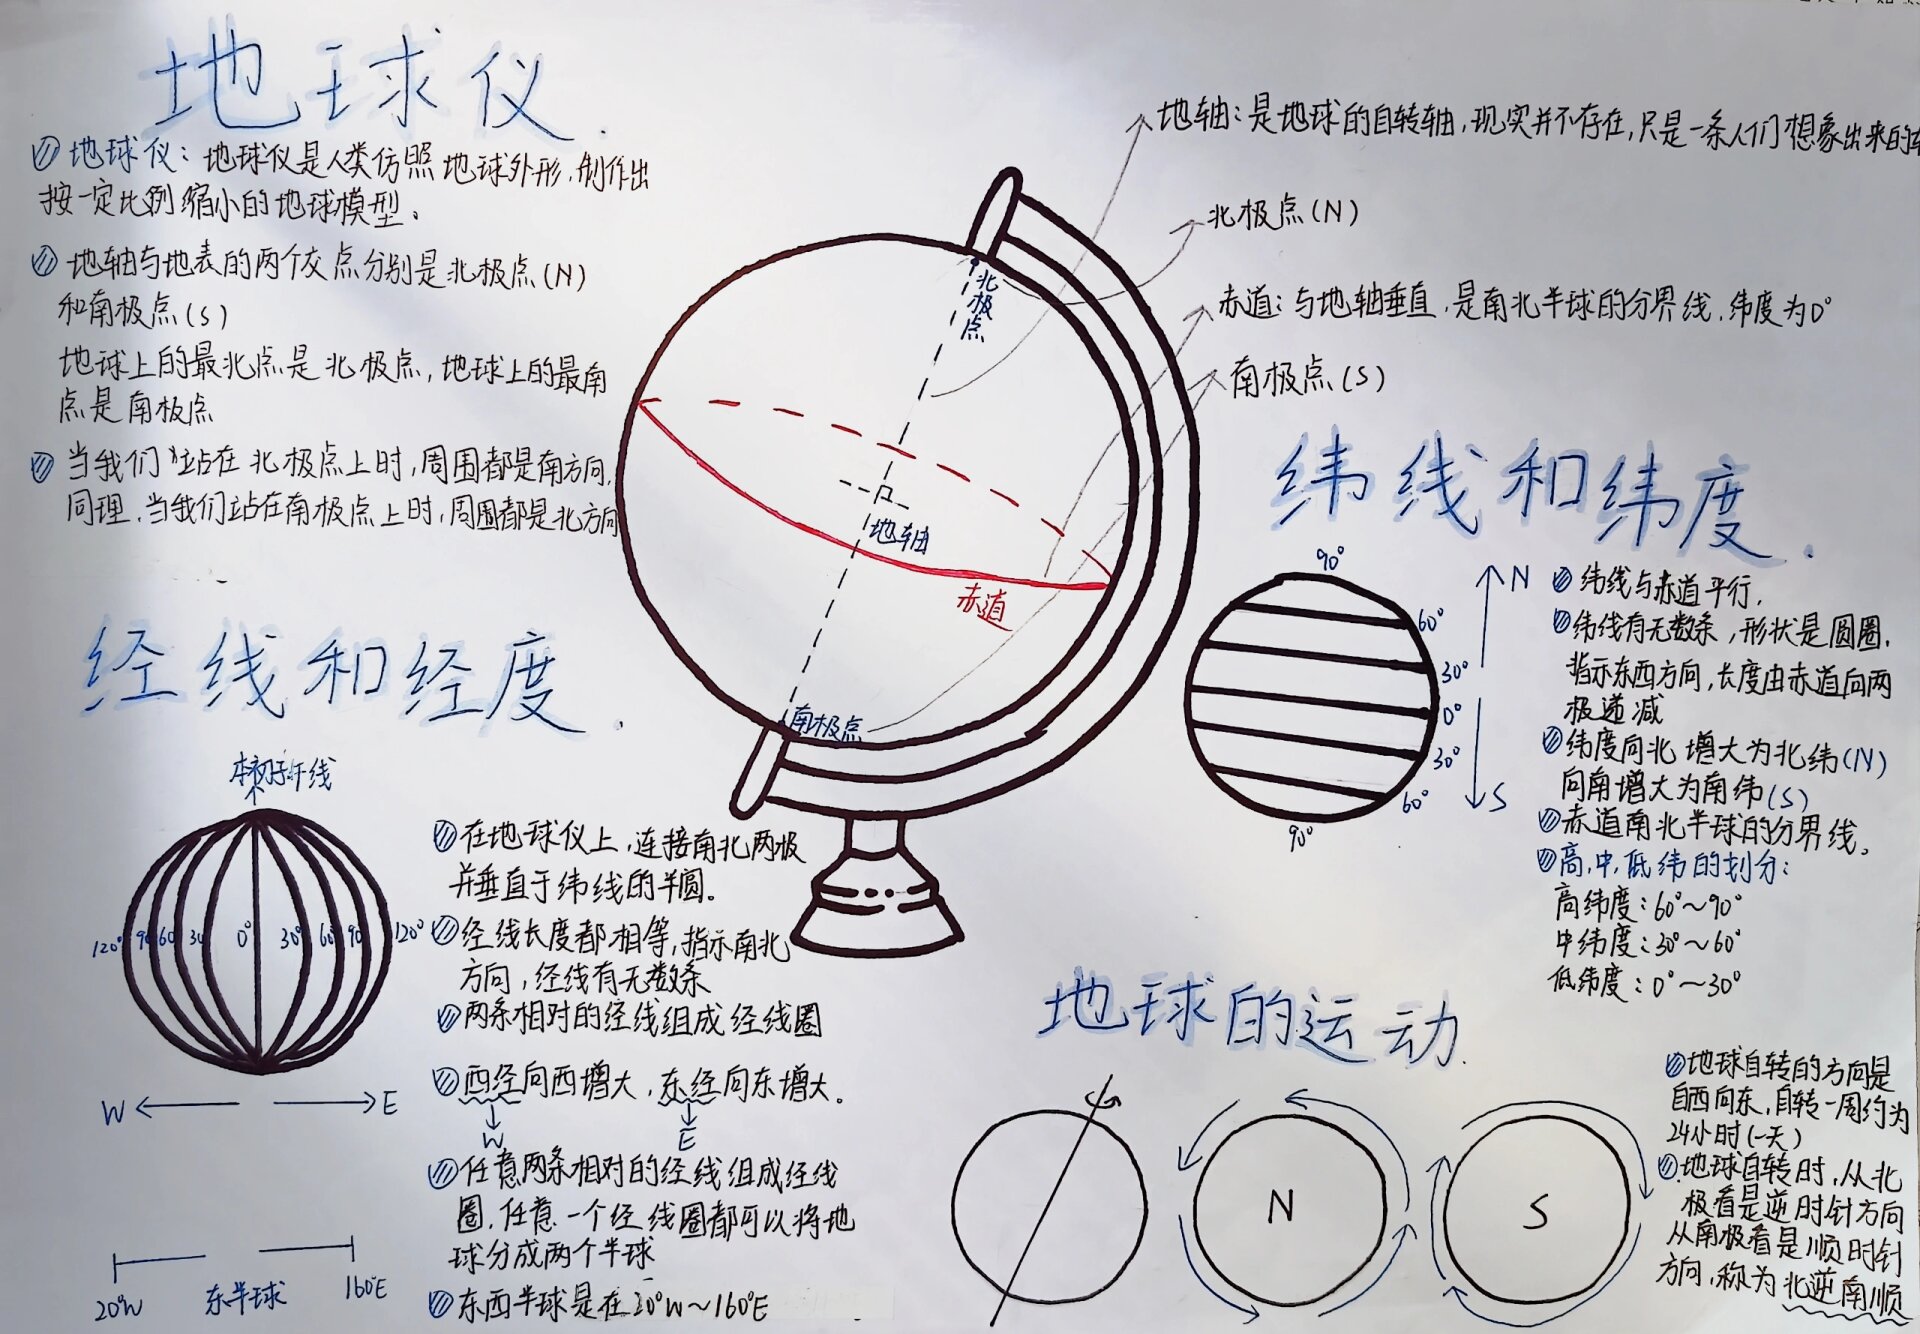 地球仪.
地球仪：地球仪是人类仿照地球外形，制作出
按一定比例缩小的地球模型。
地轴与地表的两个交点分别是北极点(N)
和南极点(S)
地球上的最北点是北极点，地球上的最南
点是南极点
当我们站在北极点上时，周围都是南方向，
同理，当我们站在南极点上时，周围都是北方向
地轴：是地球的自转轴，现实并不存在，只是一条人们想象出来的
北极点(N)
赤道：与地轴垂直，是南北半球的分界线，纬度为0°
南极点(S)
北极点
地轴
赤道
南极点
经线和经度.
本初子午线
120° 90 60 30 0° 30° 60 90 120°
W E
20°W 东半球 160°E
在地球仪上，连接南北两极
并垂直于纬线的半圆。
经线长度都相等，指示南北
方向，经线有无数条
两条相对的经线组成经线圈
西经向西增大，东经向东增大。
W E
任意两条相对的经线组成经线
圈，任意一个经线圈都可以将地
球分成两个半球
东西半球是在20°W～160°E
纬线和纬度.
90°
60°
30°
0°
30°
60°
90°
N
S
纬线与赤道平行.
纬线有无数条，形状是圆圈.
指示东西方向，长度由赤道向两
极递减
纬度向北增大为北纬(N)
向南增大为南纬(S)
赤道南北半球的分界线。
高，中，低纬的划分：
高纬度：60°～90°
中纬度：30°～60°
低纬度：0°～30°
地球的运动.
N
S
地球自转的方向是
自西向东，自转一周约为
24小时(一天)
地球自转时，从北
极看是逆时针方向
从南极看是顺时针
方向，称为北逆南顺